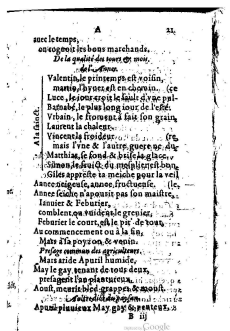 A 21
auec le temps,
on cognoit les bons marchands.
De la qualité des iours & mois
de l'Annee.
Valentin, le printemps est voisin,
martin, l'hyuer est en chemin. (ce
Luce, le iour croit le sault d'vne pul-
Barnabé, le plus long iour de l'esté.
Vrbain, le froment a fait son grain,
Laurent la chaleur,
Vincent la froideur (re,
mais l'vne & l'autre guere ne du-
Matthias, se fond & brise la glace,
A la sainct.
Simon le fruict du mesplier est bon,
Gilles appreste sa meiche pour la veil
Annee neigeuse, annee fructueuse. (le,
Annee seiche n'apouurit pas son maistre,
Ianuier & Feburier,
comblent ou vuident le grenier,
Feburier le court, est le pis de tout,
Au commencement ou à la fin,
Mars a sa poyzon & venin.
Presage commun des agriculteurs.
Mars aride Apuril humide,
May le gay, tenant de tous deux,
presagent l'an plantureux,
Aoust, meurit bled grappes & moust.
Autre dict du paysan.
Apuril pluuieux May gay & venteux,
B iij